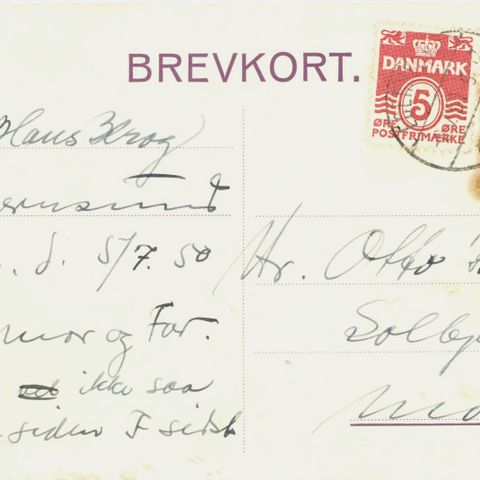 BREVKORT.
DANMARK
5
ØRE ØRE
POSTFRIMÆRKE
Hans Krog
d. 5/7.50
mor og Far.
ikke saa
siden I sidst
Hr. Otto
Solbj